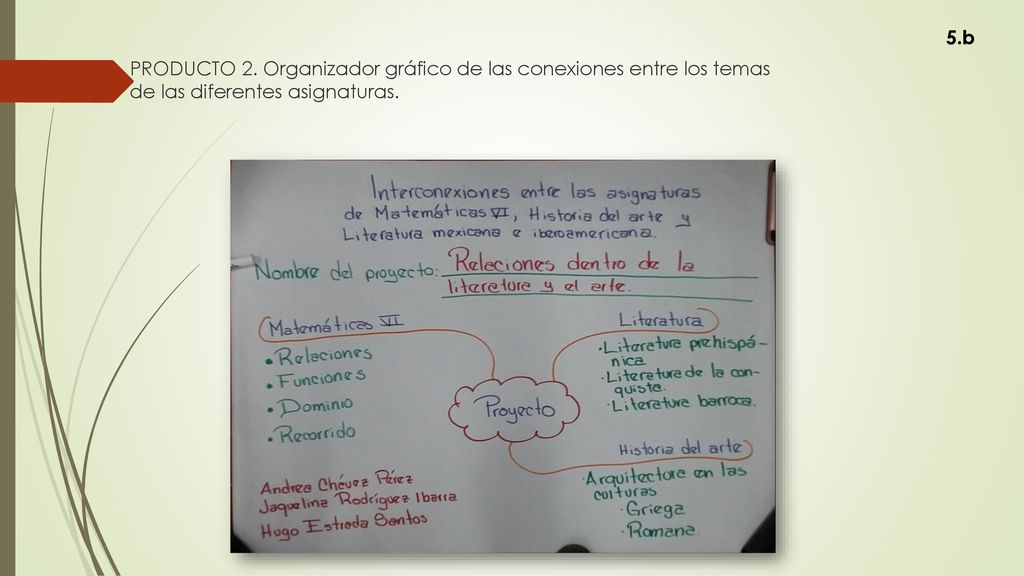 5.b
PRODUCTO 2. Organizador gráfico de las conexiones entre los temas
de las diferentes asignaturas.
Interconexiones entre las asignaturas
de Matemáticas VI, Historia del arte y
Literatura mexicana e iberoamericana.
Nombre del proyecto: Relaciones dentro de la
literatura y el arte.
Matemáticas VI
• Relaciones
• Funciones
• Dominio
• Recorrido
Proyecto
Literatura
• Literatura prehispá-
nica
• Literatura de la con-
quista.
• Literatura barroca.
Historia del arte
• Arquitectura en las
culturas
• Griega
• Romana.
Andrea Chávez Pérez
Jaquelina Rodríguez Ibarra
Hugo Estrada Santos